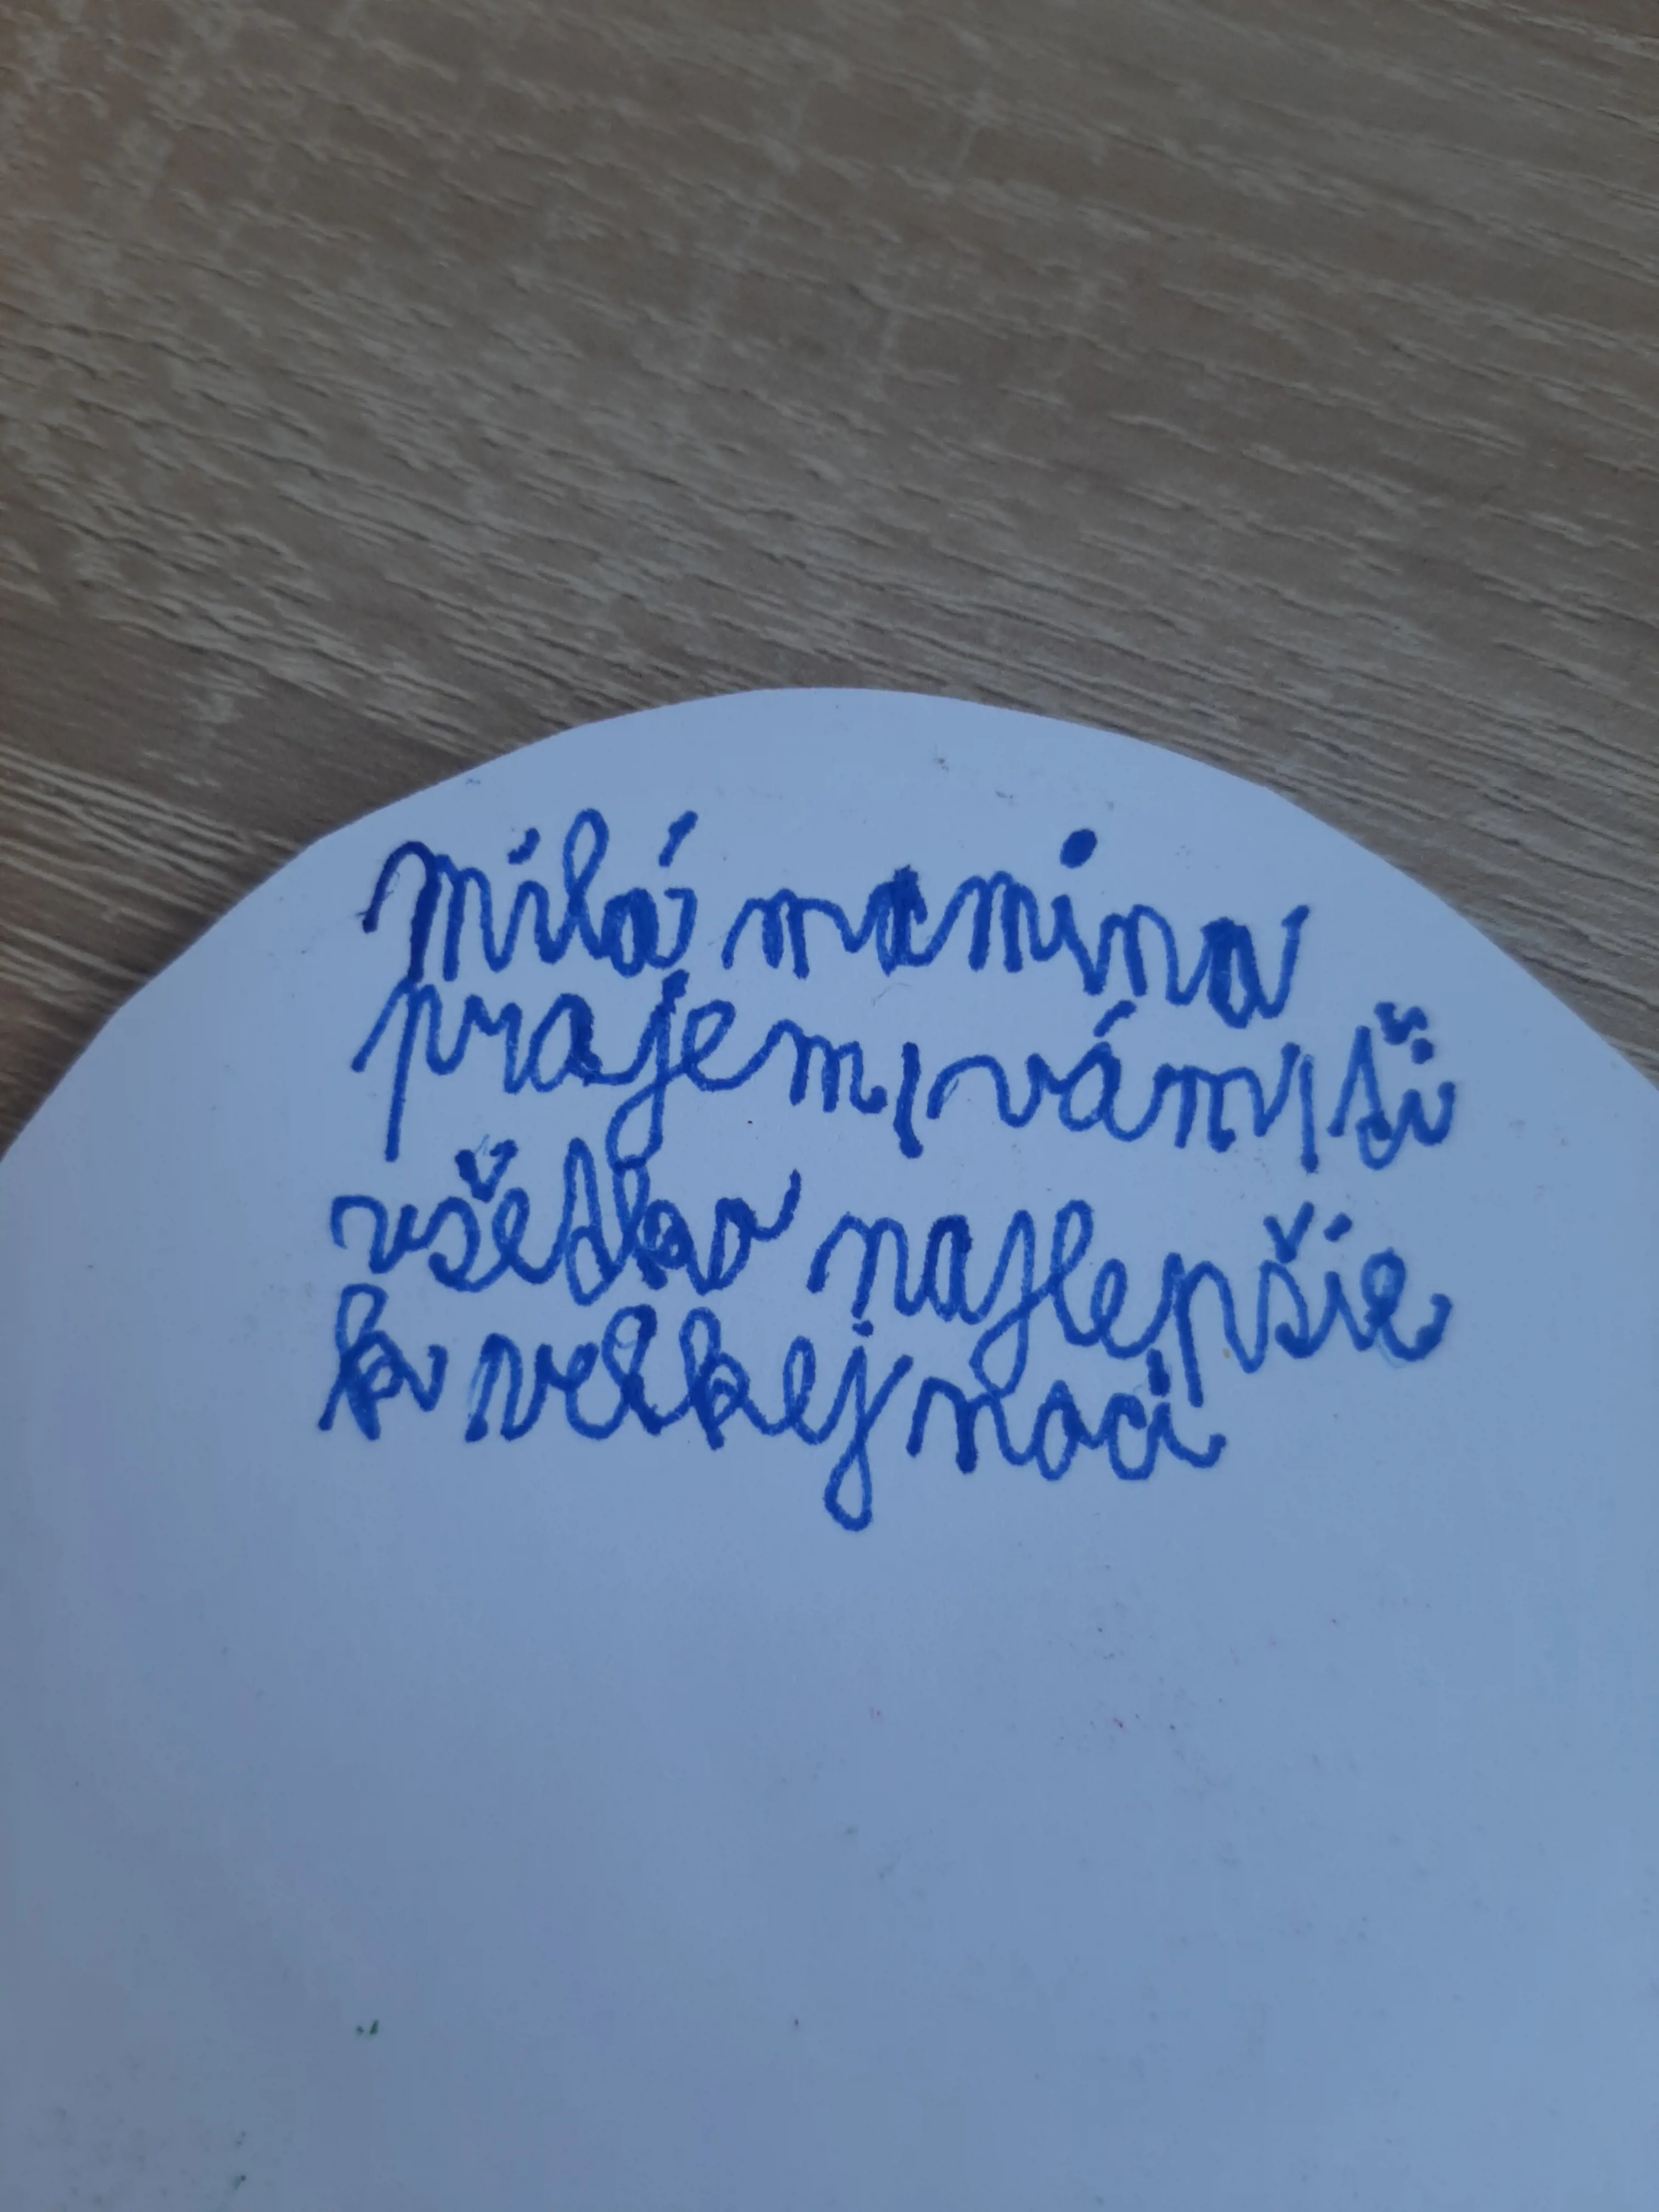 Milá mamina
prajem vám
všetko najlepšie
k veľkej noci